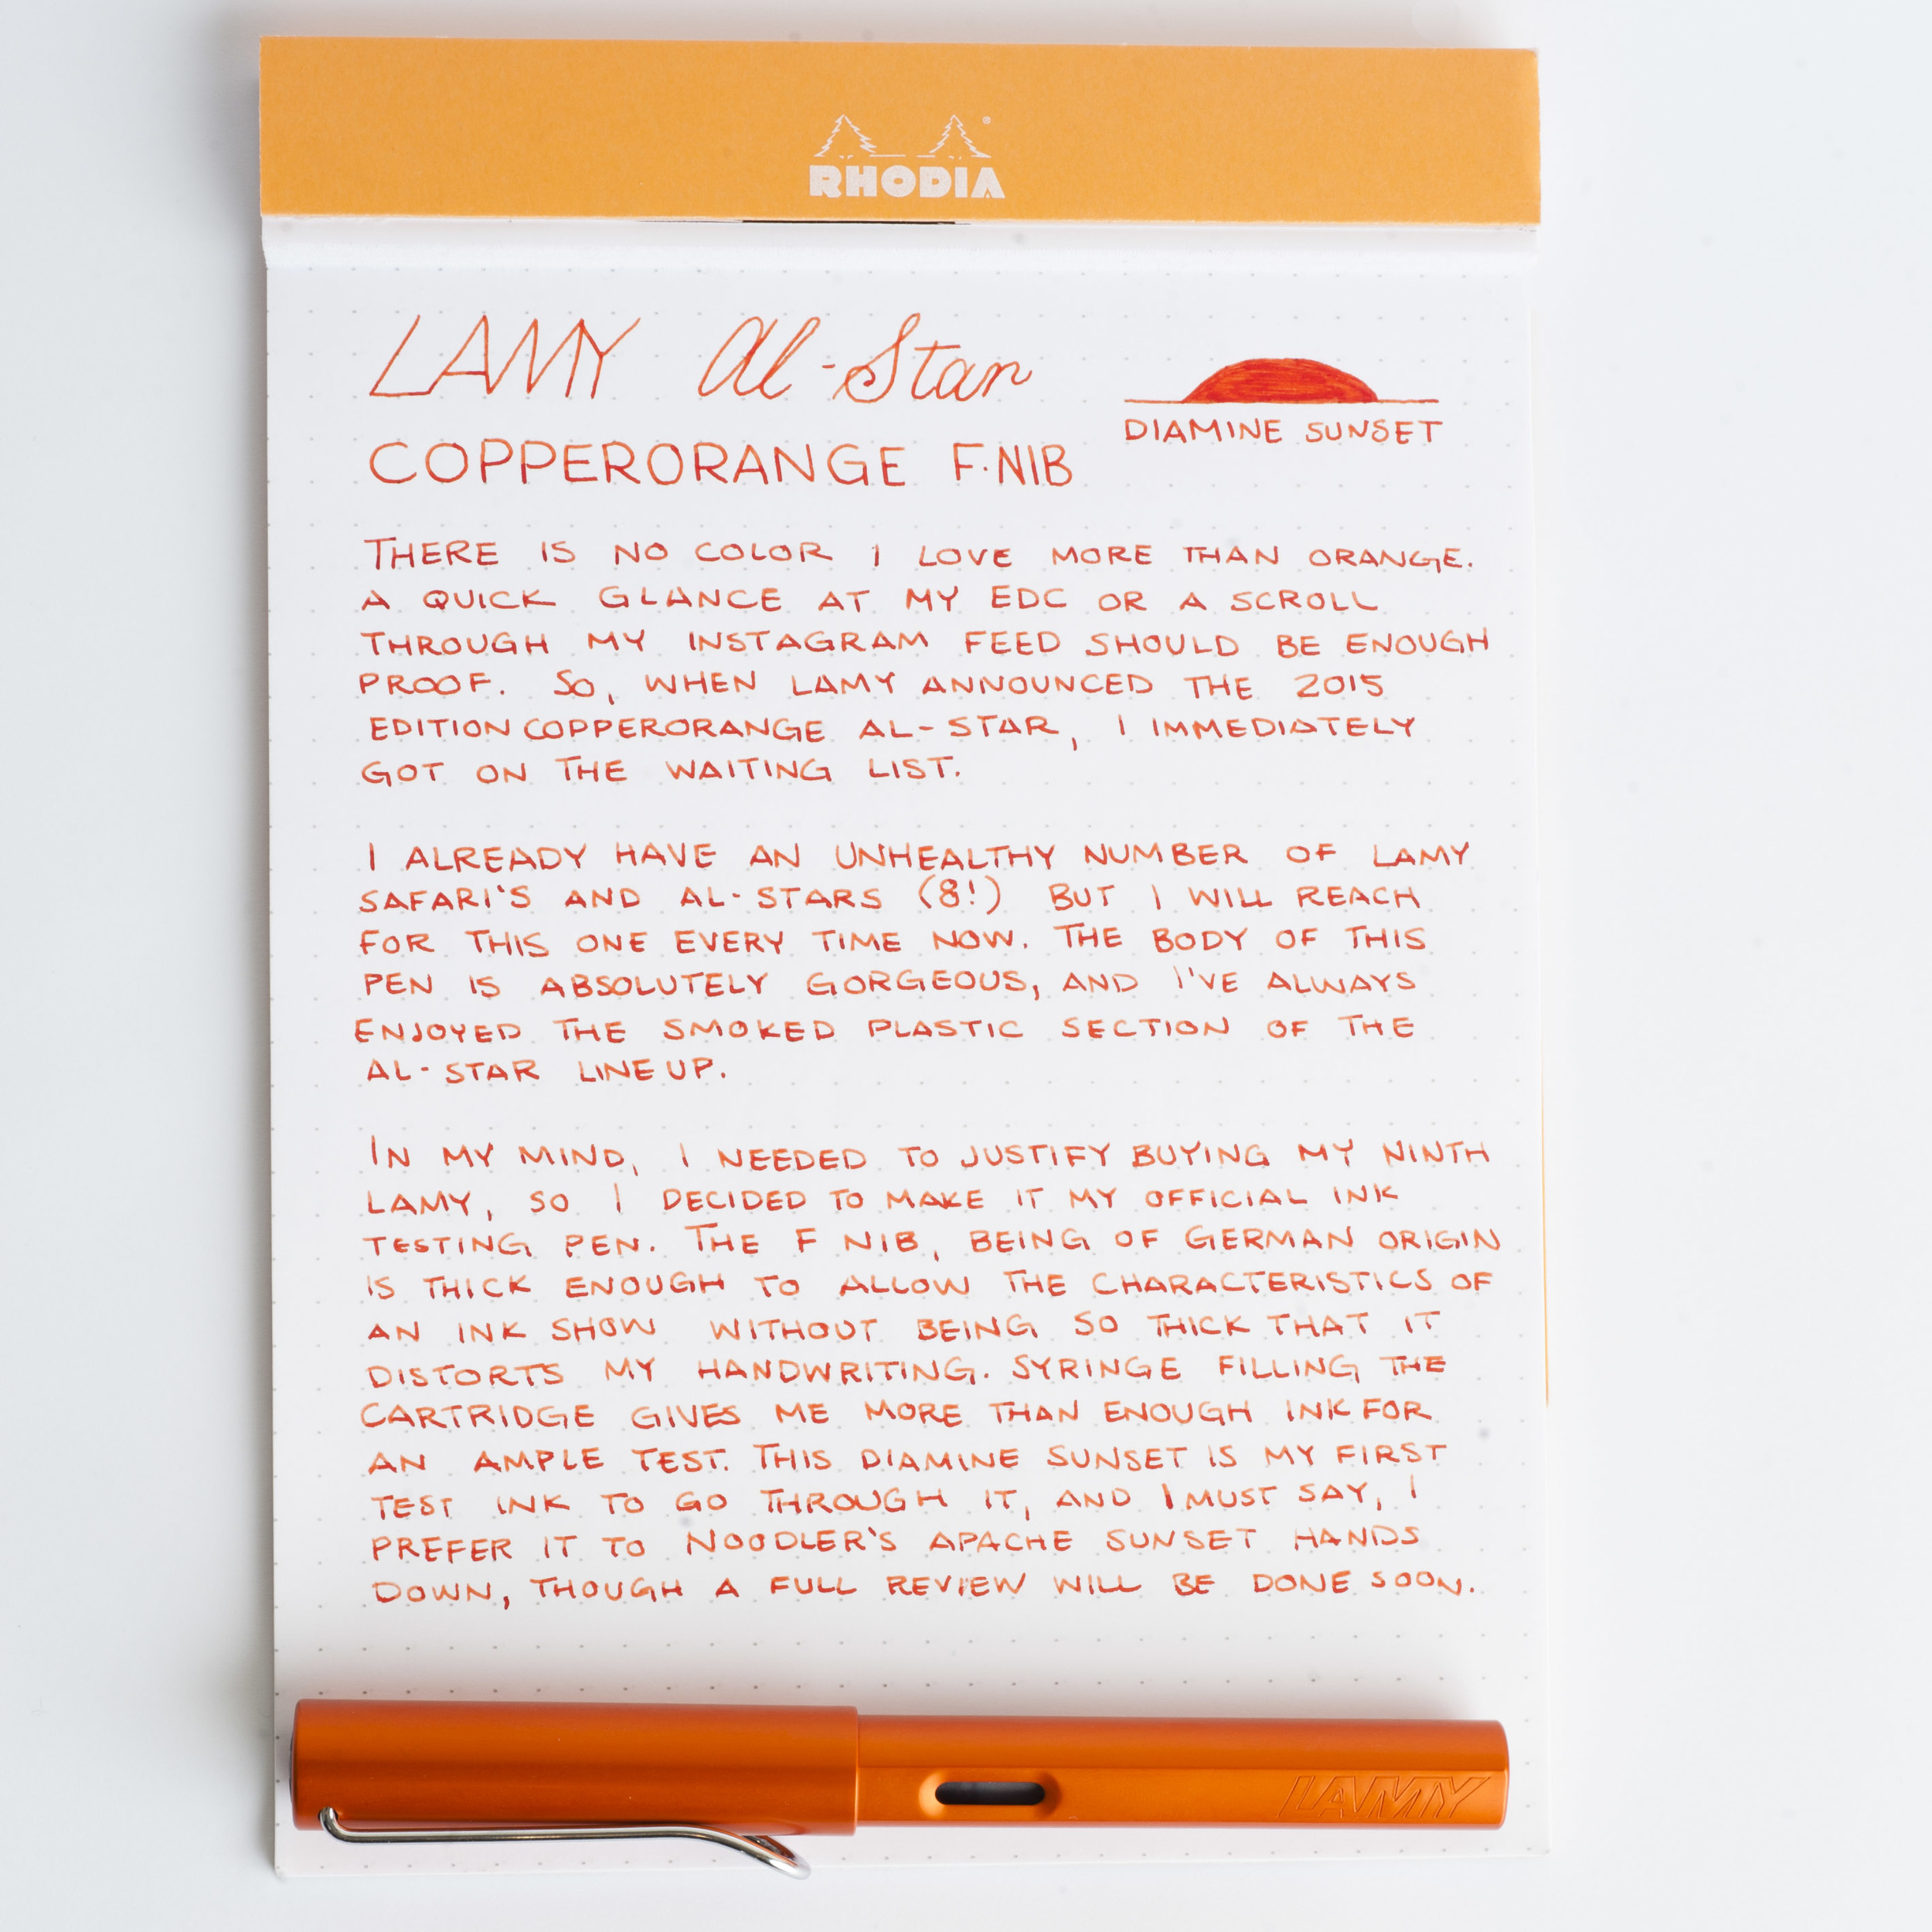 RHODIA
LAMY Al-Star
DIAMINE SUNSET
COPPERORANGE F·NIB
THERE IS NO COLOR I LOVE MORE THAN ORANGE.
A QUICK GLANCE AT MY EDC OR A SCROLL
THROUGH MY INSTAGRAM FEED SHOULD BE ENOUGH
PROOF. SO, WHEN LAMY ANNOUNCED THE 2015
EDITION COPPERORANGE AL-STAR, I IMMEDIATELY
GOT ON THE WAITING LIST.
I ALREADY HAVE AN UNHEALTHY NUMBER OF LAMY
SAFARI'S AND AL-STARS (8!) BUT I WILL REACH
FOR THIS ONE EVERY TIME NOW. THE BODY OF THIS
PEN IS ABSOLUTELY GORGEOUS, AND I'VE ALWAYS
ENJOYED THE SMOKED PLASTIC SECTION OF THE
AL-STAR LINEUP.
IN MY MIND, I NEEDED TO JUSTIFY BUYING MY NINTH
LAMY, SO I DECIDED TO MAKE IT MY OFFICIAL INK
TESTING PEN. THE F NIB, BEING OF GERMAN ORIGIN
IS THICK ENOUGH TO ALLOW THE CHARACTERISTICS OF
AN INK SHOW WITHOUT BEING SO THICK THAT IT
DISTORTS MY HANDWRITING. SYRINGE FILLING THE
CARTRIDGE GIVES ME MORE THAN ENOUGH INK FOR
AN AMPLE TEST. THIS DIAMINE SUNSET IS MY FIRST
TEST INK TO GO THROUGH IT, AND I MUST SAY, I
PREFER IT TO NOODLER'S APACHE SUNSET HANDS
DOWN, THOUGH A FULL REVIEW WILL BE DONE SOON.
LAMY